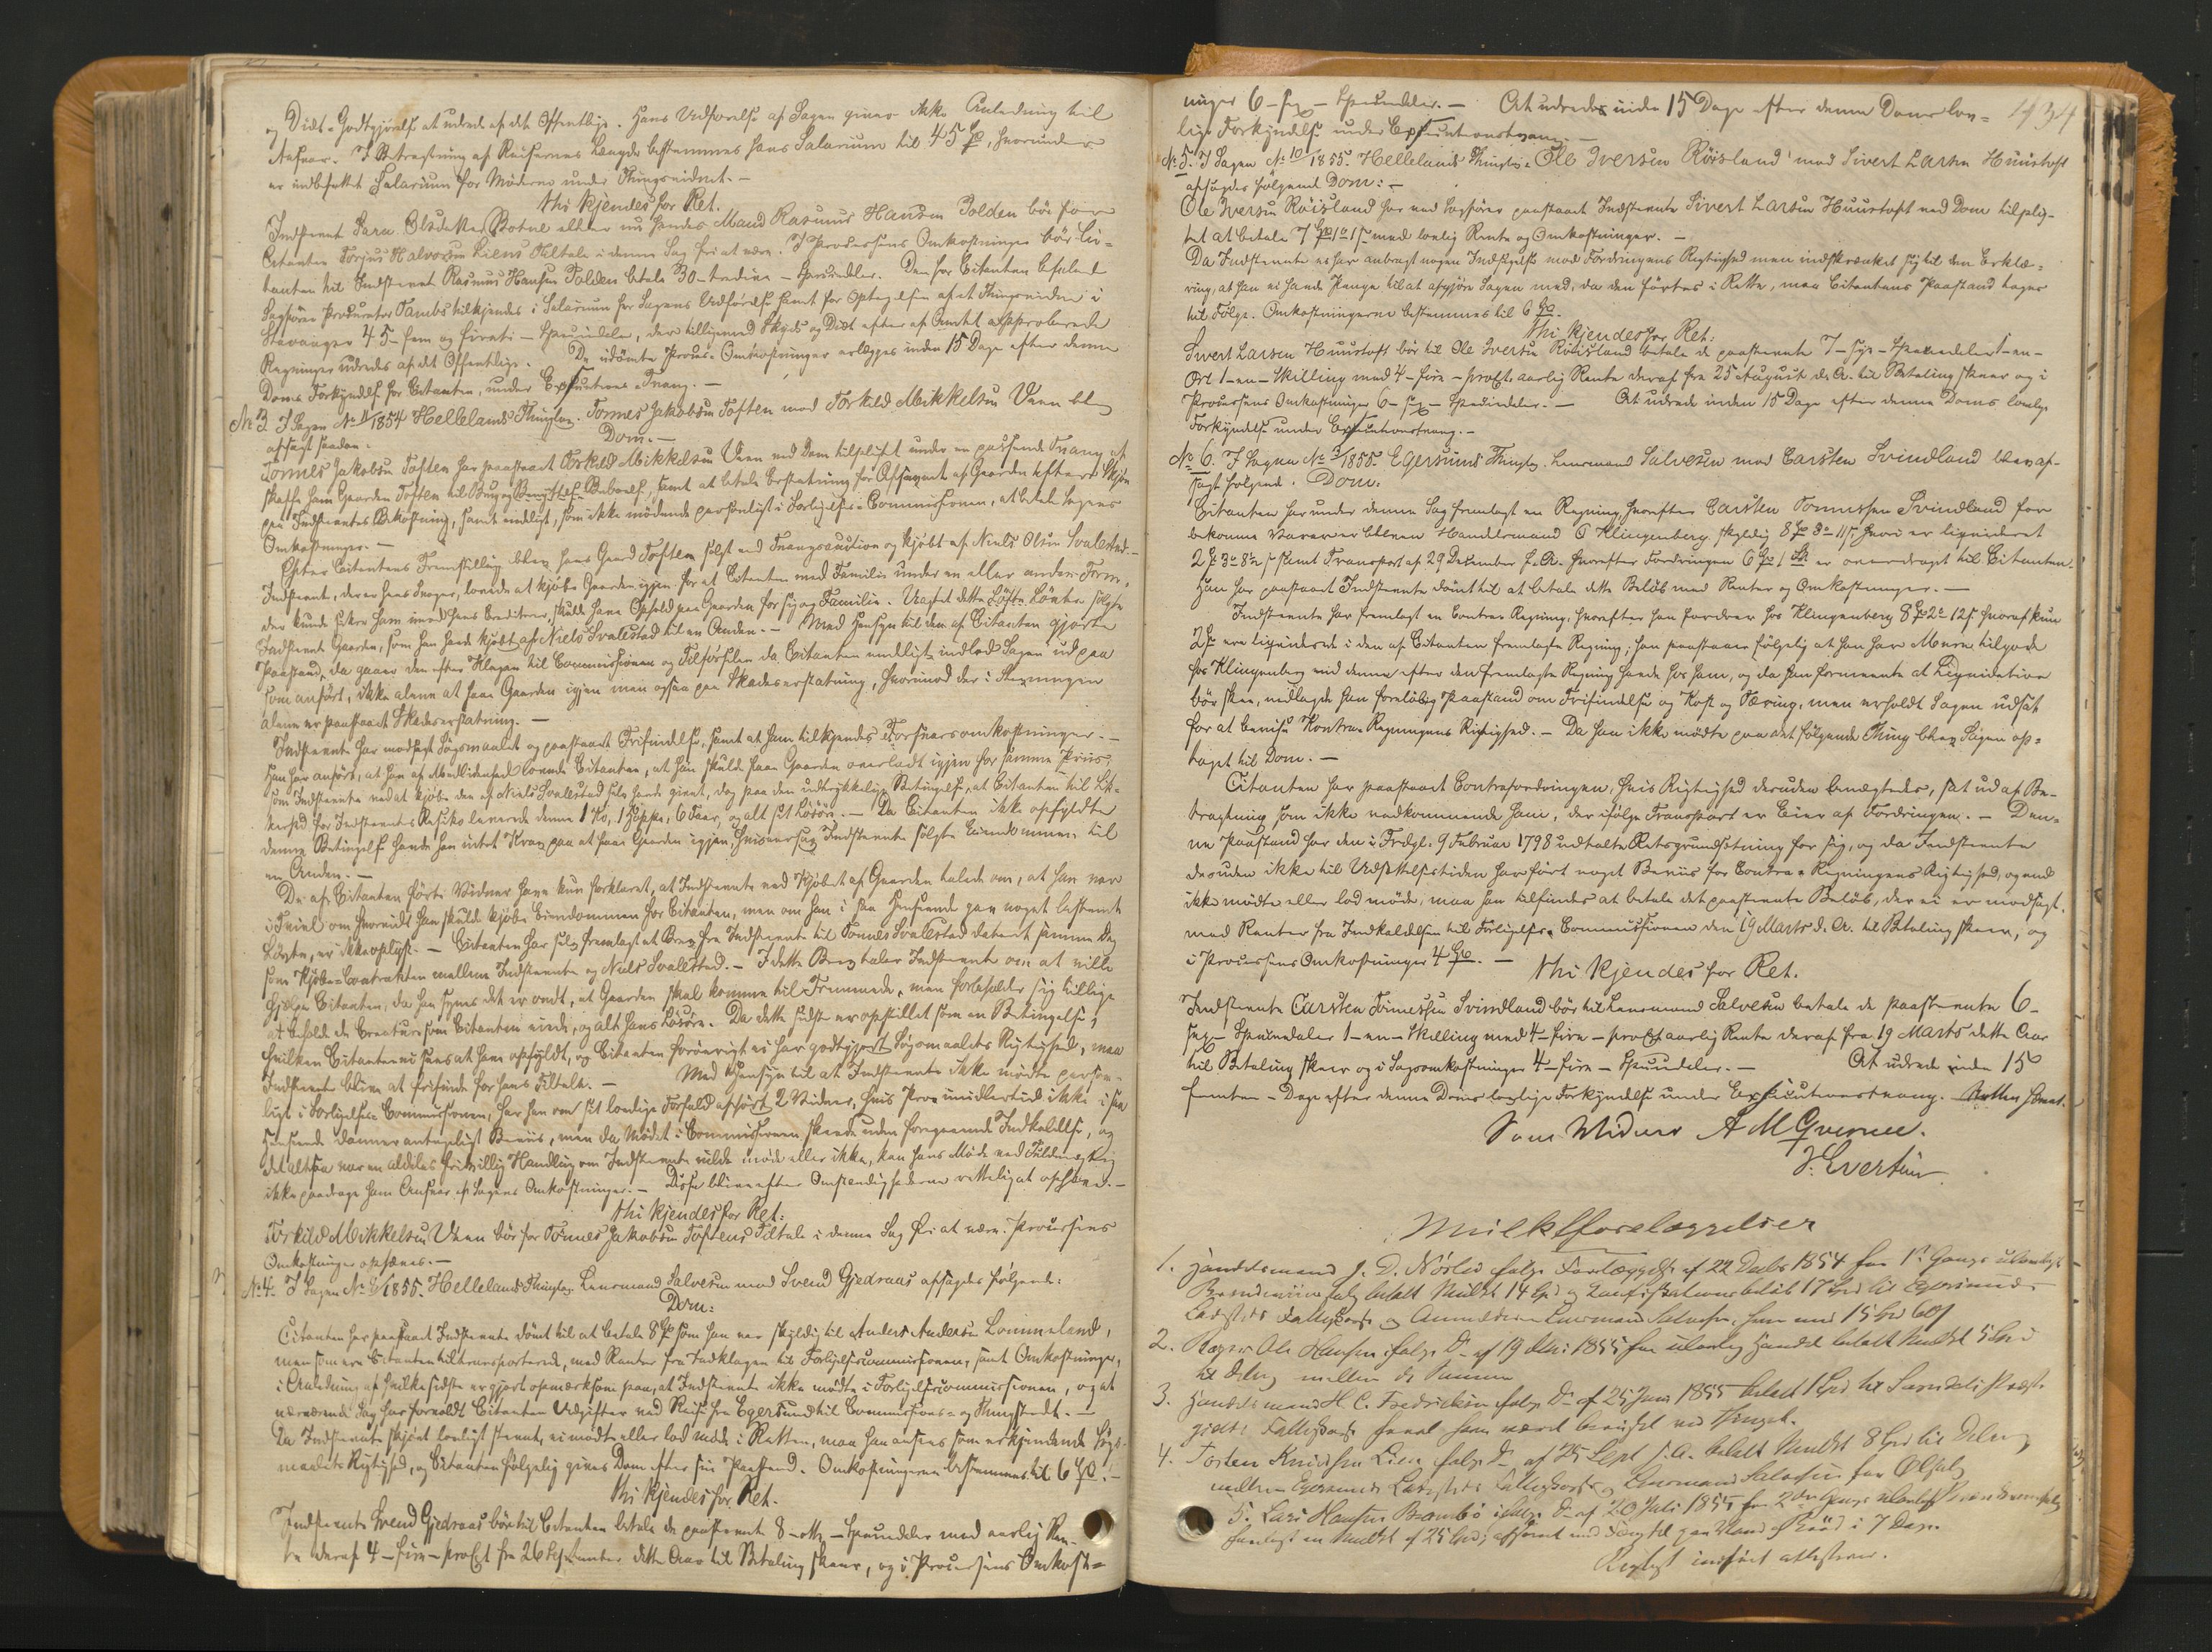 og Diæt-Godtgjørelse at udrede af det Offentlige. Hans Udførelse af Sagen giver ikke Anledning til
Ansvar. I Betragtning af Reisernes Længde bestemmes hans Salarium til 45 Spd, hvorunder
er indbefattet Salarium for Møderne under Thingsvidnet. –
Thi kjendes for Ret.
Indstevnte Sara Olsdatter eller nu hendes Mand Rasmus Hansen Tolden bør for
Citanten Torjus Halvorsen Liens Tiltale i denne Sag fri at være. I Processens Omkostninger bør Ci-
tanten til Indstevnte Rasmus Hansen Tolden betale 30 – tredive – Speciedaler. Den for Citanten befalede
Sagfører Procurator Tambs tilkjendes i Salarium for Sagens Udførelse samt for Optagelsen af et Thingsvidne i
Stavanger 45 – fem og firti – Speciedaler, der tilligemed Skyds og Diæt efter af Amtet approberede
Regninger udredes af det Offentlige. De idømte Proces-Omkostninger erlægges inden 15 Dage efter denne
Doms Forkyndelse for Citanten, under Executions-Tvang. –
No 3. I Sagen No 1854 Hellelands Thinglag. Tønnes Jakobsen Toften mod Torkild Mikkelsen Veen blev
afsagt saadan: Dom. –
Tønnes Jakobsen Toften har paastaaet Torkild Mikkelsen Veen ved Dom tilpligtet under en passende Tvang at
skaffe ham Gaarden Toften til Brug og Benyttelse, samt at betale Erstatning for Afsavnet af Gaarden efter Skjøn
paa Indstevntes Bekostning, samt endeligt, som ikke mødende personligt i Forligelses-Commissionen, at betale Sagens
Omkostninger. –
Efter Citantens Fremstilling blev hans Gaard Toften solgt ved Tvangsauction og kjøbt af Niels Olsen Svalestad. –
Indstevnte, der er hans Svoger, lovede at kjøbe Gaarden igjen for at Citanten med Familie under en eller anden Form,
der kunde sikre ham imod hans Creditorer, skulde have Ophold paa Gaarden for sig og Familie. Uagtet dette Løfte solgte
Indstevnte Gaarden, som han havde kjøbt af Niels Svalestad til en Anden. – Med Hensyn til den af Citanten gjorte
Paastand, da gaaer den efter Klagen til Commissionen og Tilførselen da Citanten endeligt indlod Sagen ud paa
som anført, ikke alene at faae Gaarden igjen men ogsaa paa Skadeserstatning, hvorimod der i Stevningen
alene er paastaaet Skadeserstatning. –
Indstevnte har modsagt Søgsmaalet og paastaaet Frifindelse, samt at ham tilkjendes Forsvarsomkostninger. –
Han har anført, at han af Medlidenhed lovede Citanten, at han skulde faae Gaarden overladt igjen for samme Priis,
som Indstevnte ved at kjøbe den af Niels Svalestad selv havde givet, dog paa den udtrykkelige Betingelse, at Citanten til Sik-
kerhed for Indstevntes Resiko leverede denne 1 Ko, 1 Hoppe, 6 Faar, og alt sit Løsøre. – Da Citanten ikke opfyldte
denne Betingelse havde han intet Krav paa at faae Gaarden igjen, hvisaarsag Indstevnte solgte Eiendommen til
en Anden. –
De af Citanten førte Vidner have kun forklaret, at Indstevnte ved Kjøbet af Gaarden talede om, at han var
i Tvivl om hvorvidt han skulde kjøbe Eiendommen for Citanten, men om han i saa Henseende gav noget bestemt
Løfte, er ikke oplyst. – Citanten har selv fremlagt et Brev fra Indstevnte til Tønnes Svalestad dateret samme Dag
som Kjøbe-Contrakten mellem Indstevnte og Niels Svalestad. – I dette Brev taler Indstevnte om at ville
hjelpe Citanten, da han synes det er ondt, at Gaarden skal komme til Fremmede, men forbeholder sig tillige
at beholde de Creature som Citanten eiede, og alt hans Løsøre. Da dette sidste er opstillet som en Betingelse,
hvilken Citanten ei sees at have opfyldt, og Citanten forøvrigt ei har godtgjort Søgsmaalets Rigtighed, maa
Indstevnte blive at frifinde for hans Tiltale. – Med Hensyn til at Indstevnte ikke mødte person-
ligt i Forligelses Commissionen, har han om sit lovlige Forfald afhørt 2 Vidner, hvis Prov imidlertid ikke i saa
Henseende danner antageligt Beviis, men da Mødet i Commissionen skeede uden foregaaende Indkaldelse, og
det altsaa var en aldeles frivillig Handling om Indstevnte vilde møde eller ikke, kan hans Møde ved Fuldmægtig
ikke paadrage ham Ansvar af Sagens Omkostninger. – Disse blive efter Omstændighederne rettelig at ophæve. –
Thi kjendes for Ret:
Torkild Mikkelsen Veen bør for Tønnes Jakobsen Toftens Tiltale i denne Sag fri at være. Processens
Omkostninger ophæves. –
No 4. I Sagen No 1855. Hellelands Thinglag. Lensmand Salvesen mod Svend Gjedraas afsagdes følgende:
Dom:
Citanten har paastaaet Indstevnte dømt til at betale 8 Spd som han var skyldig til Anders Andersen Lommeland,
men som ere Citanten tiltransporterede, med Renter fra Indklagen til Forligelsescommissionen, samt Omkostninger,
i Anledning af hvilke sidste er gjort opmærksom paa, at Indstevnte ikke mødte i Forligelsescommissionen, og at
nærværende Sag har forvoldt Citanten Udgifter ved Reise fra Egersund til Commissions- og Thingstedt. –
Da Indstevnte skjønt lovligt stevnt, ei mødte eller lod møde i Retten, maa han ansees som erkjendende Søgs-
maalets Rigtighed, og Citanten følgelig gives Dom efter sin Paastand. Omkostningerne bestemmes til 6 Spd. –
Thi kjendes for Ret.
Indstevnte Svend Gjedraas bør til Citanten betale de paastevnte 8 – otte – Speciedaler med aarlig Ren-
te deraf 4 – fire – prCt fra 26 September dette Aar til Betaling skeer, og i Processens Omkost-
434
ninger 6 – sex – Speciedaler. – At udredes inden 15 Dage efter denne Doms lov-
lige Forkyndelse under Executionstvang. –
No 5. I Sagen No 10/1855. Hellelands Thinglag. Ole Iversen Röisland mod Sivert Larsen Huustoft
afsagdes følgende Dom: –
Ole Iversen Röisland har ved Sagfører paastaaet Indstevnte Sivert Larsen Huustoft ved Dom tilplig-
tet at betale 7 Spd 1 Ort 1 s med lovlig Rente og Omkostninger. –
Da Indstevnte ei har anbragt nogen Indsigelse mod Fordringens Rigtighed men indskrænket sig til den Erklæ-
ring, at han ei havde Penge til at afgjøre Sagen med, da den førtes i Rette, maa Citantens Paastand tages
til Følge. Omkostningerne bestemmes til 6 Spd.
Thi kjendes for Ret:
Sivert Larsen Huustoft bør til Ole Iversen Röisland betale de paastevnte 7 – syv – Speciedaler 1 – en –
Ort 1 – en – Skilling med 4 – fire – prCt. aarlig Rente deraf fra 25 August d. A. til Betaling skeer og i
Processens Omkostninger 6 – sex – Speciedaler. – At udrede inden 15 Dage efter denne Doms lovlige
Forkyndelse under Executionstvang. –
No 6. I Sagen No 3/1855. Egersunds Thinglag. Lensmand Salvesen mod Carsten Svindland blev af-
sagt følgende Dom:
Citanten har under denne Sag fremlagt en Regning, hvorefter Carsten Tønnessen Svindland for
bekomne Varer er bleven Handelsmand O Klingenberg skyldig 8 Spd 3 Ort 11 s hvori er liqvideret
2 Spd 3 Ort samt Transport af 29 December f. A. hvorefter Fordringen 6 Spd 1 s er overdraget til Citanten.
Han har paastaaet Indstevnte dømt til at betale dette Beløb med Renter og Omkostninger. –
Indstevnte har fremlagt en Contra-Regning, hvorefter han fordrer hos Klingenberg 8 Spd 2 Ort 12 s hvoraf kun
2 Spd ere liqviderede i den af Citanten fremlagte Regning; han paastaaer følgelig at han have Mere tilgode
hos Klingenberg end denne efter den fremlagte Regning havde hos ham, og da han formeente at Liqvidation
bør skee, nedlagde han foreløbig Paastand om Frifindelse og Kost og Tæring, men erholdt Sagen udsat
for at bevise Kontra-Regningens Rigtighed. – Da han ikke mødte paa det følgende Thing blev Sagen op-
taget til Dom. –
Citanten har paastaaet Contrafordringen, hvis Rigtighed desuden benægtedes, sat ud af Be-
tragtning som ikke vedkommende ham, der ifølge Transport er Eier af Fordringen. – Den-
ne Paastand har den i Frdg. 9 Februar 1798 udtalte Retsgrundsætning for sig, og da Indstevnte
desuden ikke til Udsættelsestiden har ført noget Beviis for Contra-Regningens Rigtighed, og end
ikke mødte eller lod møde, maa han tilfindes at betale det paastevnte Beløb, der ei er modsagt,
med Renter fra Indkaldelsen til Forligelses-Commissionen den 19 Marts d. A. til Betaling skeer, og
i Processens Omkostninger 4 Spd. – Thi kjendes for Ret.
Indstevnte Carsten Tønnessen Svindland bør til Lensmand Salvesen betale de paastevnte 6 –
sex – Speciedaler 1 – en – Skilling med 4 – fire – prCt aarlig Rente deraf fra 19 Marts dette Aar
til Betaling skeer og i Sagsomkostninger 4 – fire – Speciedaler. – At udrede inden 15
femten – Dage efter denne Doms lovlige Forkyndelse under Executionstvang. Retten hævet.
Som Vidner A M Qvenne.
J. Evertsen
Mulktforelæggelser
1. Handelsmand J. D. Nórlio ifølge Forelæggelse af 22 Decbr 1854 for 1ste Gangs ulovligt
Brændeviinsalg betalt Mulkt 14 Spd og Confiskationsbeløb 17 Spd til Egersunds
Ladsteds Fattigkasse og Anmelderen Lensmand Salvesen, hver med 15 Spd 60 s
2. Ole Hansen ifølge Do af 19 1855 for ulovlig Handel betalt Mulkt 5 Spd
til Deling mellem de Samme
3. Handelsmand H. C. Fredriksen ifølge Do af 25 Juni 1855 betalt 1 Spd til Præste-
gjelds Fattigkasse
4. Torsten Knudsen Lien ifølge Do af 25 Sept f. A. betalt Mulkt 8 Spd til Deling
mellem Egersunds Ladsteds Fattigkasse og Lensmand Salvesen for Ølsalg
5. Lars Hansen Brambö ifølge Do af 20 Juli 1855 for 2den Gangs ulovligt Brændeviinsalg
forelagt en Mulkt af 25 Spd; afsonet med Fængsel paa Vand og Brød i 7 Dage.
Rigtigt indført attesteres.